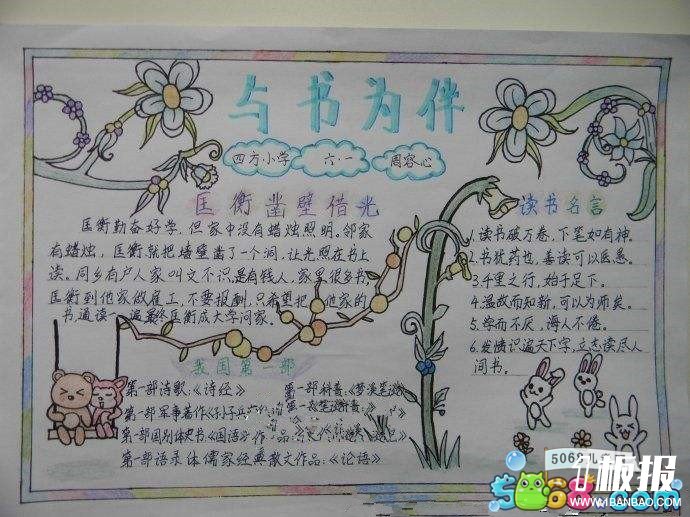 与书为伴
四方小学 六·一 周容心
匡衡凿壁借光
匡衡勤奋好学,但家中没有蜡烛照明,邻家
有蜡烛,匡衡就把墙壁凿了一个洞,让光照在书上
读。同乡有户人家叫文不识,是有钱人,家里很多书,
匡衡到他家做雇工,不要报酬,只希望把他家的
书通读一遍,最终匡衡成大学问家。
读书名言
1.读书破万卷,下笔如有神。
2.书犹药也,善读可以医愚。
3.千里之行,始于足下。
4.温故而知新,可以为师矣。
5.学而不厌,诲人不倦。
6.发愤识遍天下字,立志读尽人
间书。
我国第一部
第一部诗歌:《诗经》 第一部科普:《梦溪笔谈》
第一部军事著作《孙子兵
第一部国别体史书:《国语》
第一部语录体儒家经典散文作品:《论语》
5068儿
板报
5068.com
WWW.1BANBAO.COM